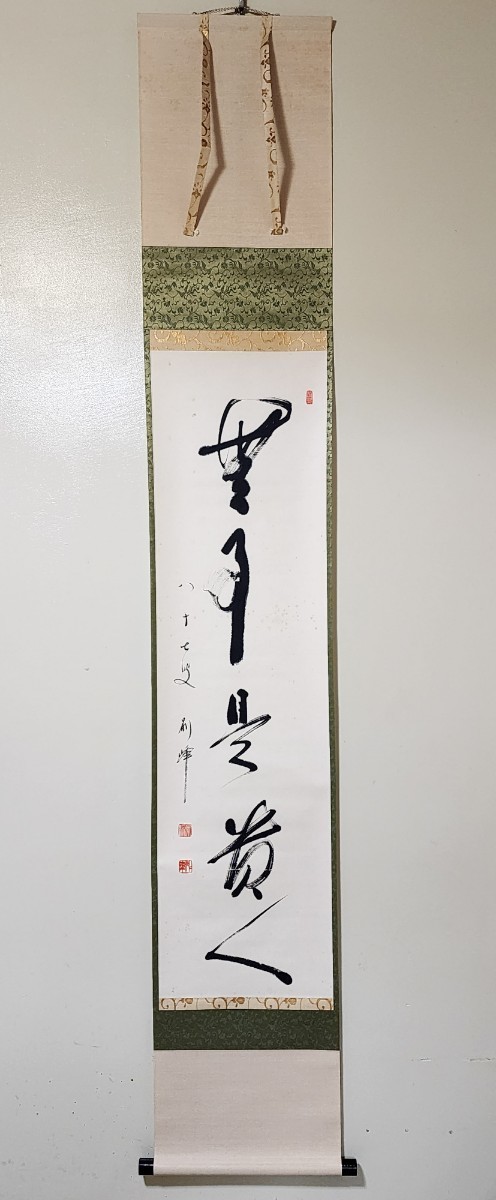 無事是貴人
八十七叟 剛峰